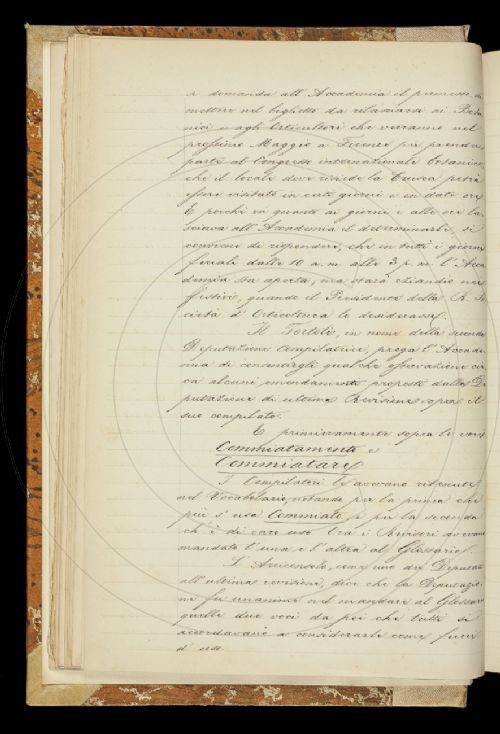 si domanda all'Accademia il permesso di
mettere nel biglietto da rilasciarsi ai Bota
nici e agli Orticultori che verranno nel
prossimo Maggio a Firenze per prender
parte al Congresso internazionale botanico,
che il locale dove risiede la Crusca potrà
essere visitato in certi giorni e in date ore
E poichè in quanto ai giorni e alle ore la
sciava all'Accademia il determinarle, si
convenne di rispondere, che in tutti i giorni
feriali dalle 10 a. m. alle 3 p. m. l'Acca
demia sta aperta, ma starà eziandio nei
festivi, quando il Presidente della R. So
cietà d'Orticultura lo desiderasse.
Il Tortoli, in nome della seconda
Deputazione compilatrice, prega l'Accade
mia di consentirgli qualche osservazione cir
ca alcuni emendamenti proposti dalla De
putazione di ultima Revisione sopra il
suo compilato.
E primieramente sopra le voci
Commiatamento e
Commiatare
I Compilatori le avevano ritenute
nel Vocabolario, notando per la prima che
più s'usa Commiato, e per la seconda
ch'è di raro uso. Ora i Revisori avevano
mandato l'una e l'altra al Glossario.
L' come uno dei Deputati
all'ultima revisione, dice che la Deputazio
ne fu unanime nel mandare al Glossario
quelle due voci da poi che tutti si
accordavano a considerarle come fuori
d'uso.